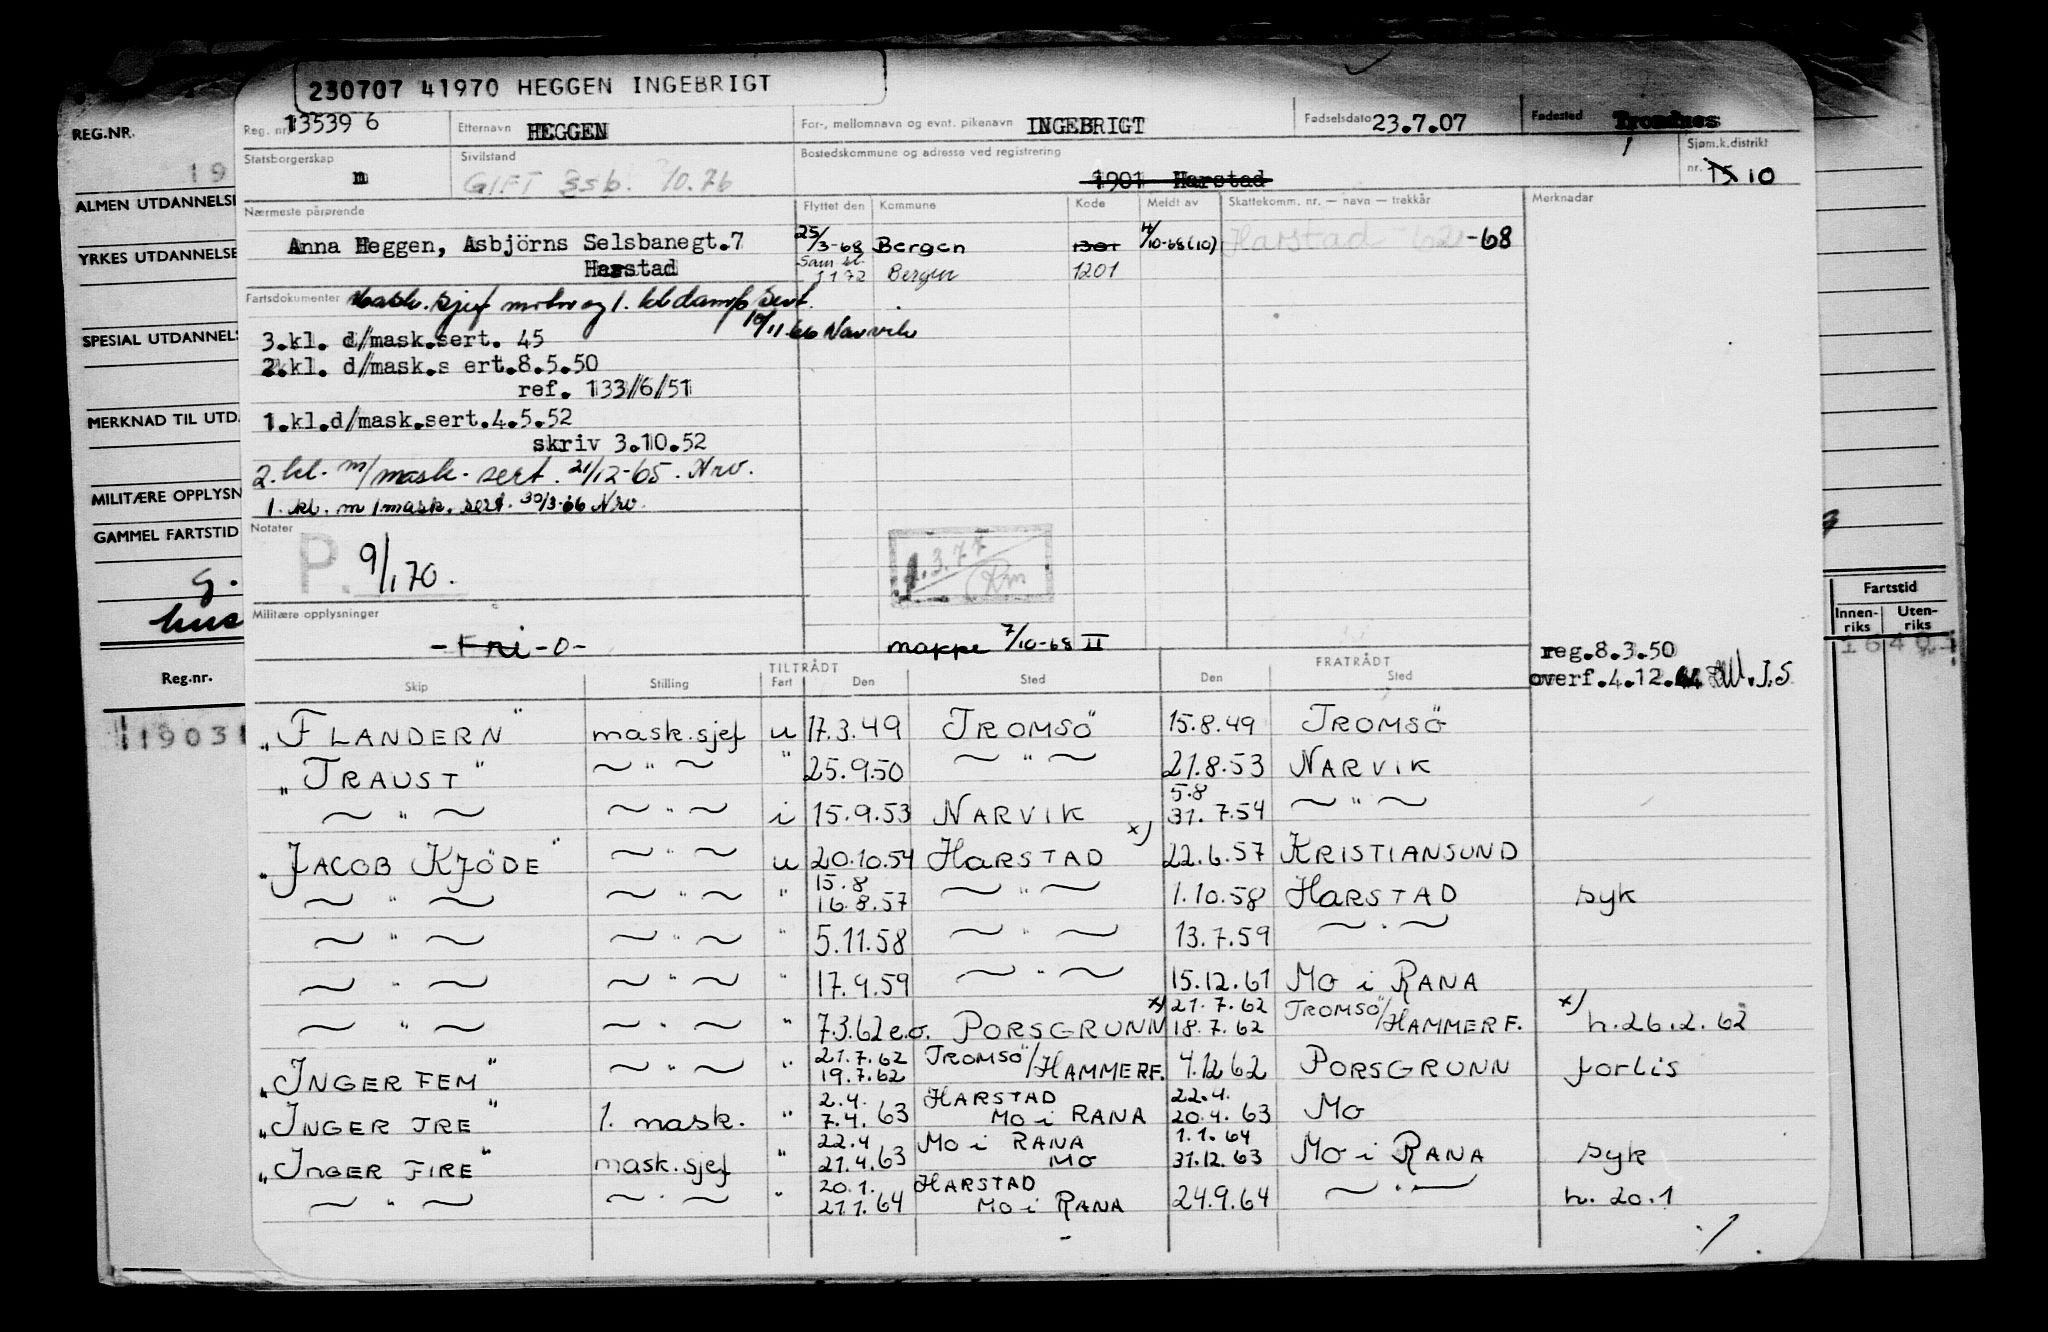 230707 41970 HEGGEN INGEBRIGT
REG.NR.
19
ALMEN UTDANNELSE
YRKES UTDANNELSE
SPESIAL UTDANNELS
MERKNAD TIL UTD.
MILITÆRE OPPLYSN
GAMMEL FARTSTID
g.
hus
Reg.nr.
19031
Reg. nr. 13539 6 Etternavn HEGGEN For-, mellomnavn og evnt. pikenavn INGEBRIGT Fødselsdato 23.7.07 Fødested Trondnes
Statsborgerskap n Sivilstand GIFT 3sb. 7/0.76 Bostedskommune og adresse ved registrering 1901 Harstad Sjøm.k.distrikt nr. 15 10
Nærmeste pårørende Flyttet den Kommune Kode Meldt av Skattekomm. nr. — navn — trekkår Merknader
Anna Heggen, Asbjörns Selsbanegt.7 25/3-68 Bergen 1301 4/10-68(10) Harstad -68
Harstad Bergen 1201
Fartsdokumenter Mask. sjef motor og 1. kl damp sert.
10/11.66 Narvik
3.kl. d/mask.sert. 45
2.kl. d/mask.s ert.8.5.50
ref. 133/6/51
1.kl.d/mask.sert.4.5.52
skriv 3.10.52
2. kl. m/mask. sert. 21/12-65. Nrv.
1. kl. m/mask. sert. 30/3-66 Nrv.
Notater
P. 9/1 70.
1.3.77 Rm
Militære opplysninger
-Fri-0-
mappe 7/10-68 II
reg.8.3.50
overf.4.12.
Fartstid
Innen-riks Uten-riks
TILTRÅDT FRATRÅDT
Skip Stilling Fart Den Sted Den Sted
„FLANDERN" mask.sjef u 17.3.49 TROMSÖ 15.8.49 TROMSÖ
„TRAUST" ~ " ~ " 25.9.50 ~ " ~ 21.8.53 NARVIK
~ " ~ ~ " ~ i 15.9.53 NARVIK 5.8 31.7.54 ~ " ~
„JACOB KJÖDE" ~ " ~ u 20.10.54 HARSTAD x) 22.6.57 KRISTIANSUND
~ " ~ ~ " ~ " 15.8 16.8.57 ~ " ~ 1.10.58 HARSTAD syk
~ " ~ ~ " ~ " 5.11.58 ~ " ~ 13.7.59 ~ " ~
~ " ~ ~ " ~ " 17.9.59 ~ " ~ 15.12.61 MO i RANA
~ " ~ ~ " ~ " 7.3.62 e.o. PORSGRUNN x) 21.7.62 18.7.62 TROMSÖ/HAMMERF. x) h.26.2.62
„INGER FEM" ~ " ~ " 21.7.62 19.7.62 TROMSÖ/HAMMERF. 4.12 62 PORSGRUNN forlis
„INGER TRE" 1. mask. " 2.4. 7.4. 63 HARSTAD MO i RANA 22.4. 20.4. 63 MO
„INGER FIRE" mask.sjef " 22.4 21.4.63 MO i RANA MO 1.1.64 31.12.63 MO i RANA syk
~ " ~ ~ " ~ " 20.1. 21.1.64 HARSTAD MO i RANA 24.9.64 ~ " ~ h. 20.1